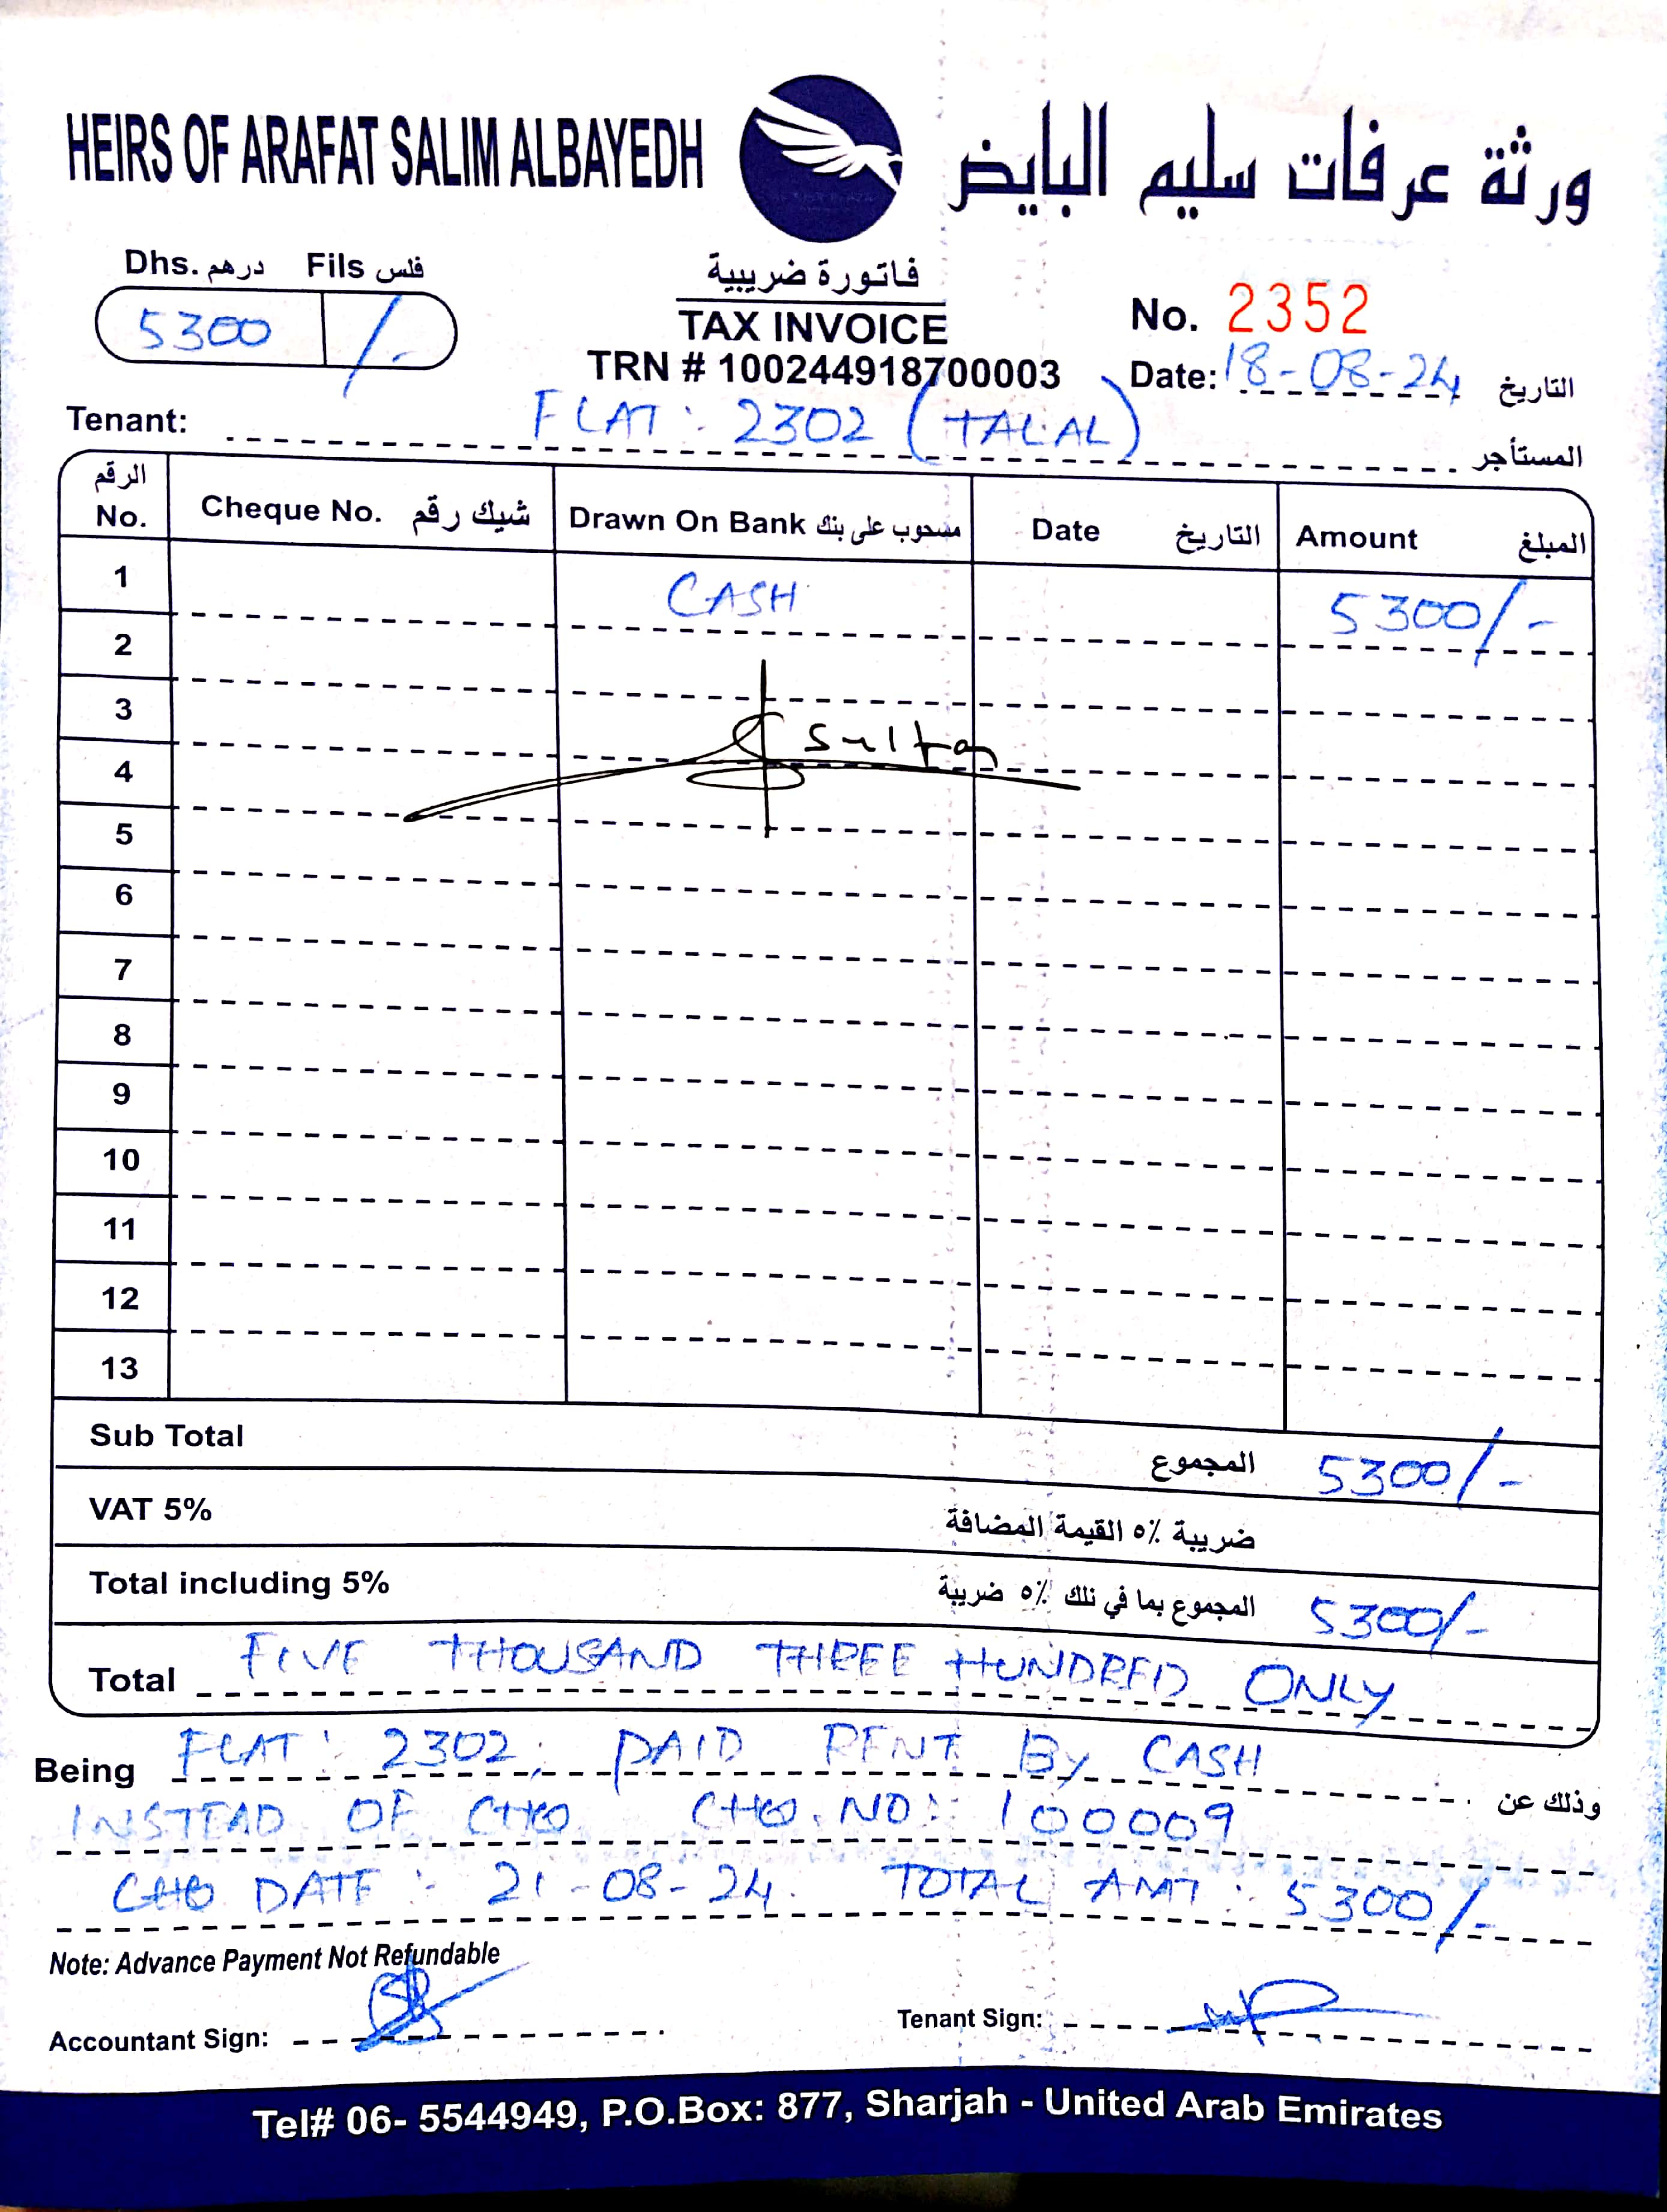 HEIRS OF ARAFAT SALIM ALBAYEDH ورثة عرفات سليم البايض
Dhs. درهم Fils فلس
5300 /-
فاتورة ضريبية
TAX INVOICE
TRN # 100244918700003
No. 2352
Date: 18-08-24 التاريخ
Tenant: FLAT : 2302 (TALAL) المستأجر
الرقم No. Cheque No. شيك رقم Drawn On Bank مسحوب على بنك Date التاريخ Amount المبلغ
1 CASH 5300/-
2
3
sultan
4
5
6
7
8
9
10
11
12
13
Sub Total المجموع 5300/-
VAT 5% ضريبة ٥٪ القيمة المضافة
Total including 5% المجموع بما في ذلك ٥٪ ضريبة 5300/-
Total FIVE THOUSAND THREE HUNDRED ONLY
Being FLAT : 2302, PAID RENT By CASH وذلك عن
INSTEAD OF CHQ CHQ. NO : 100009
CHQ DATE :- 21-08-24. TOTAL AMT : 5300/-
Note: Advance Payment Not Refundable
Accountant Sign: Tenant Sign:
Tel# 06- 5544949, P.O.Box: 877, Sharjah - United Arab Emirates